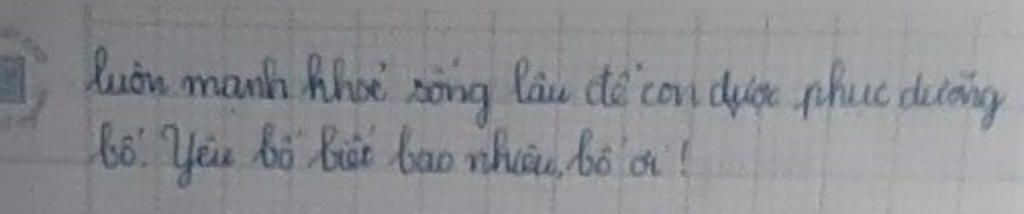 luôn mạnh khoẻ sống lâu để con được phục dưỡng
bố. Yêu bố biết bao nhiêu, bố ơi!